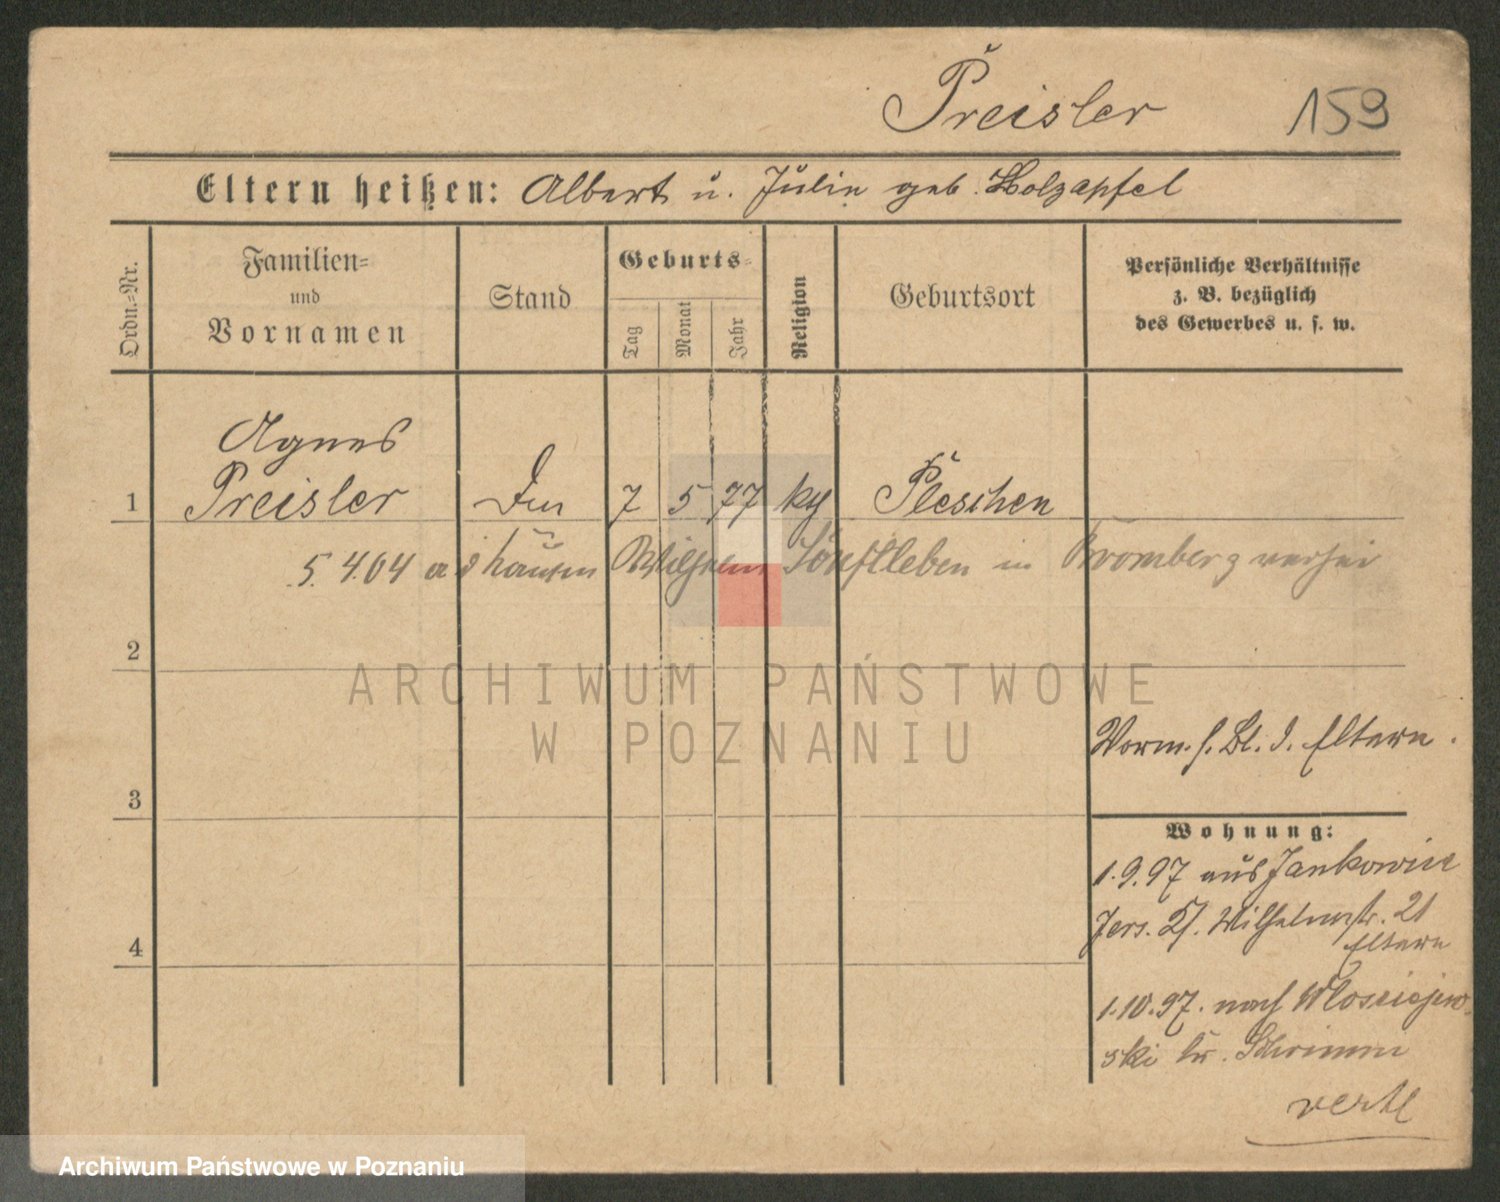 Preisler 159
Eltern heißen: Albert u. Julie geb. Holzapfel
Ordn.=Nr.
Familien=
und
Vornamen
Stand
Geburts=
Tag
Monat
Jahr
Religion
Geburtsort
Persönliche Verhältnisse
z. B. bezüglich
des Gewerbes u. s. w.
Agnes
1 Preisler 7 5 77 Pleschen
5.4.04 Wilhelm in Bromberg
2
Vorm. s. Bl. d. Eltern.
3
Wohnung:
1.9.97 aus Jankowice
Jers. Wilhelmstr. 21
Eltern
4
1.10.97. nach Wlosciejew
ski Kr. Schrimm
verte
ARCHIWUM PAŃSTWOWE
W POZNANIU
Archiwum Państwowe w Poznaniu